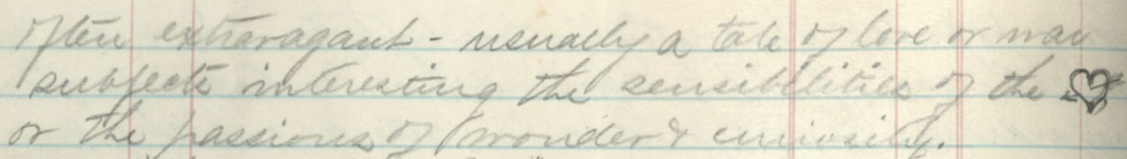 often extravagant - usually a tale of love or war
subjects interesting the sensibilities of the ♡
or the passions of wonder & curiosity.